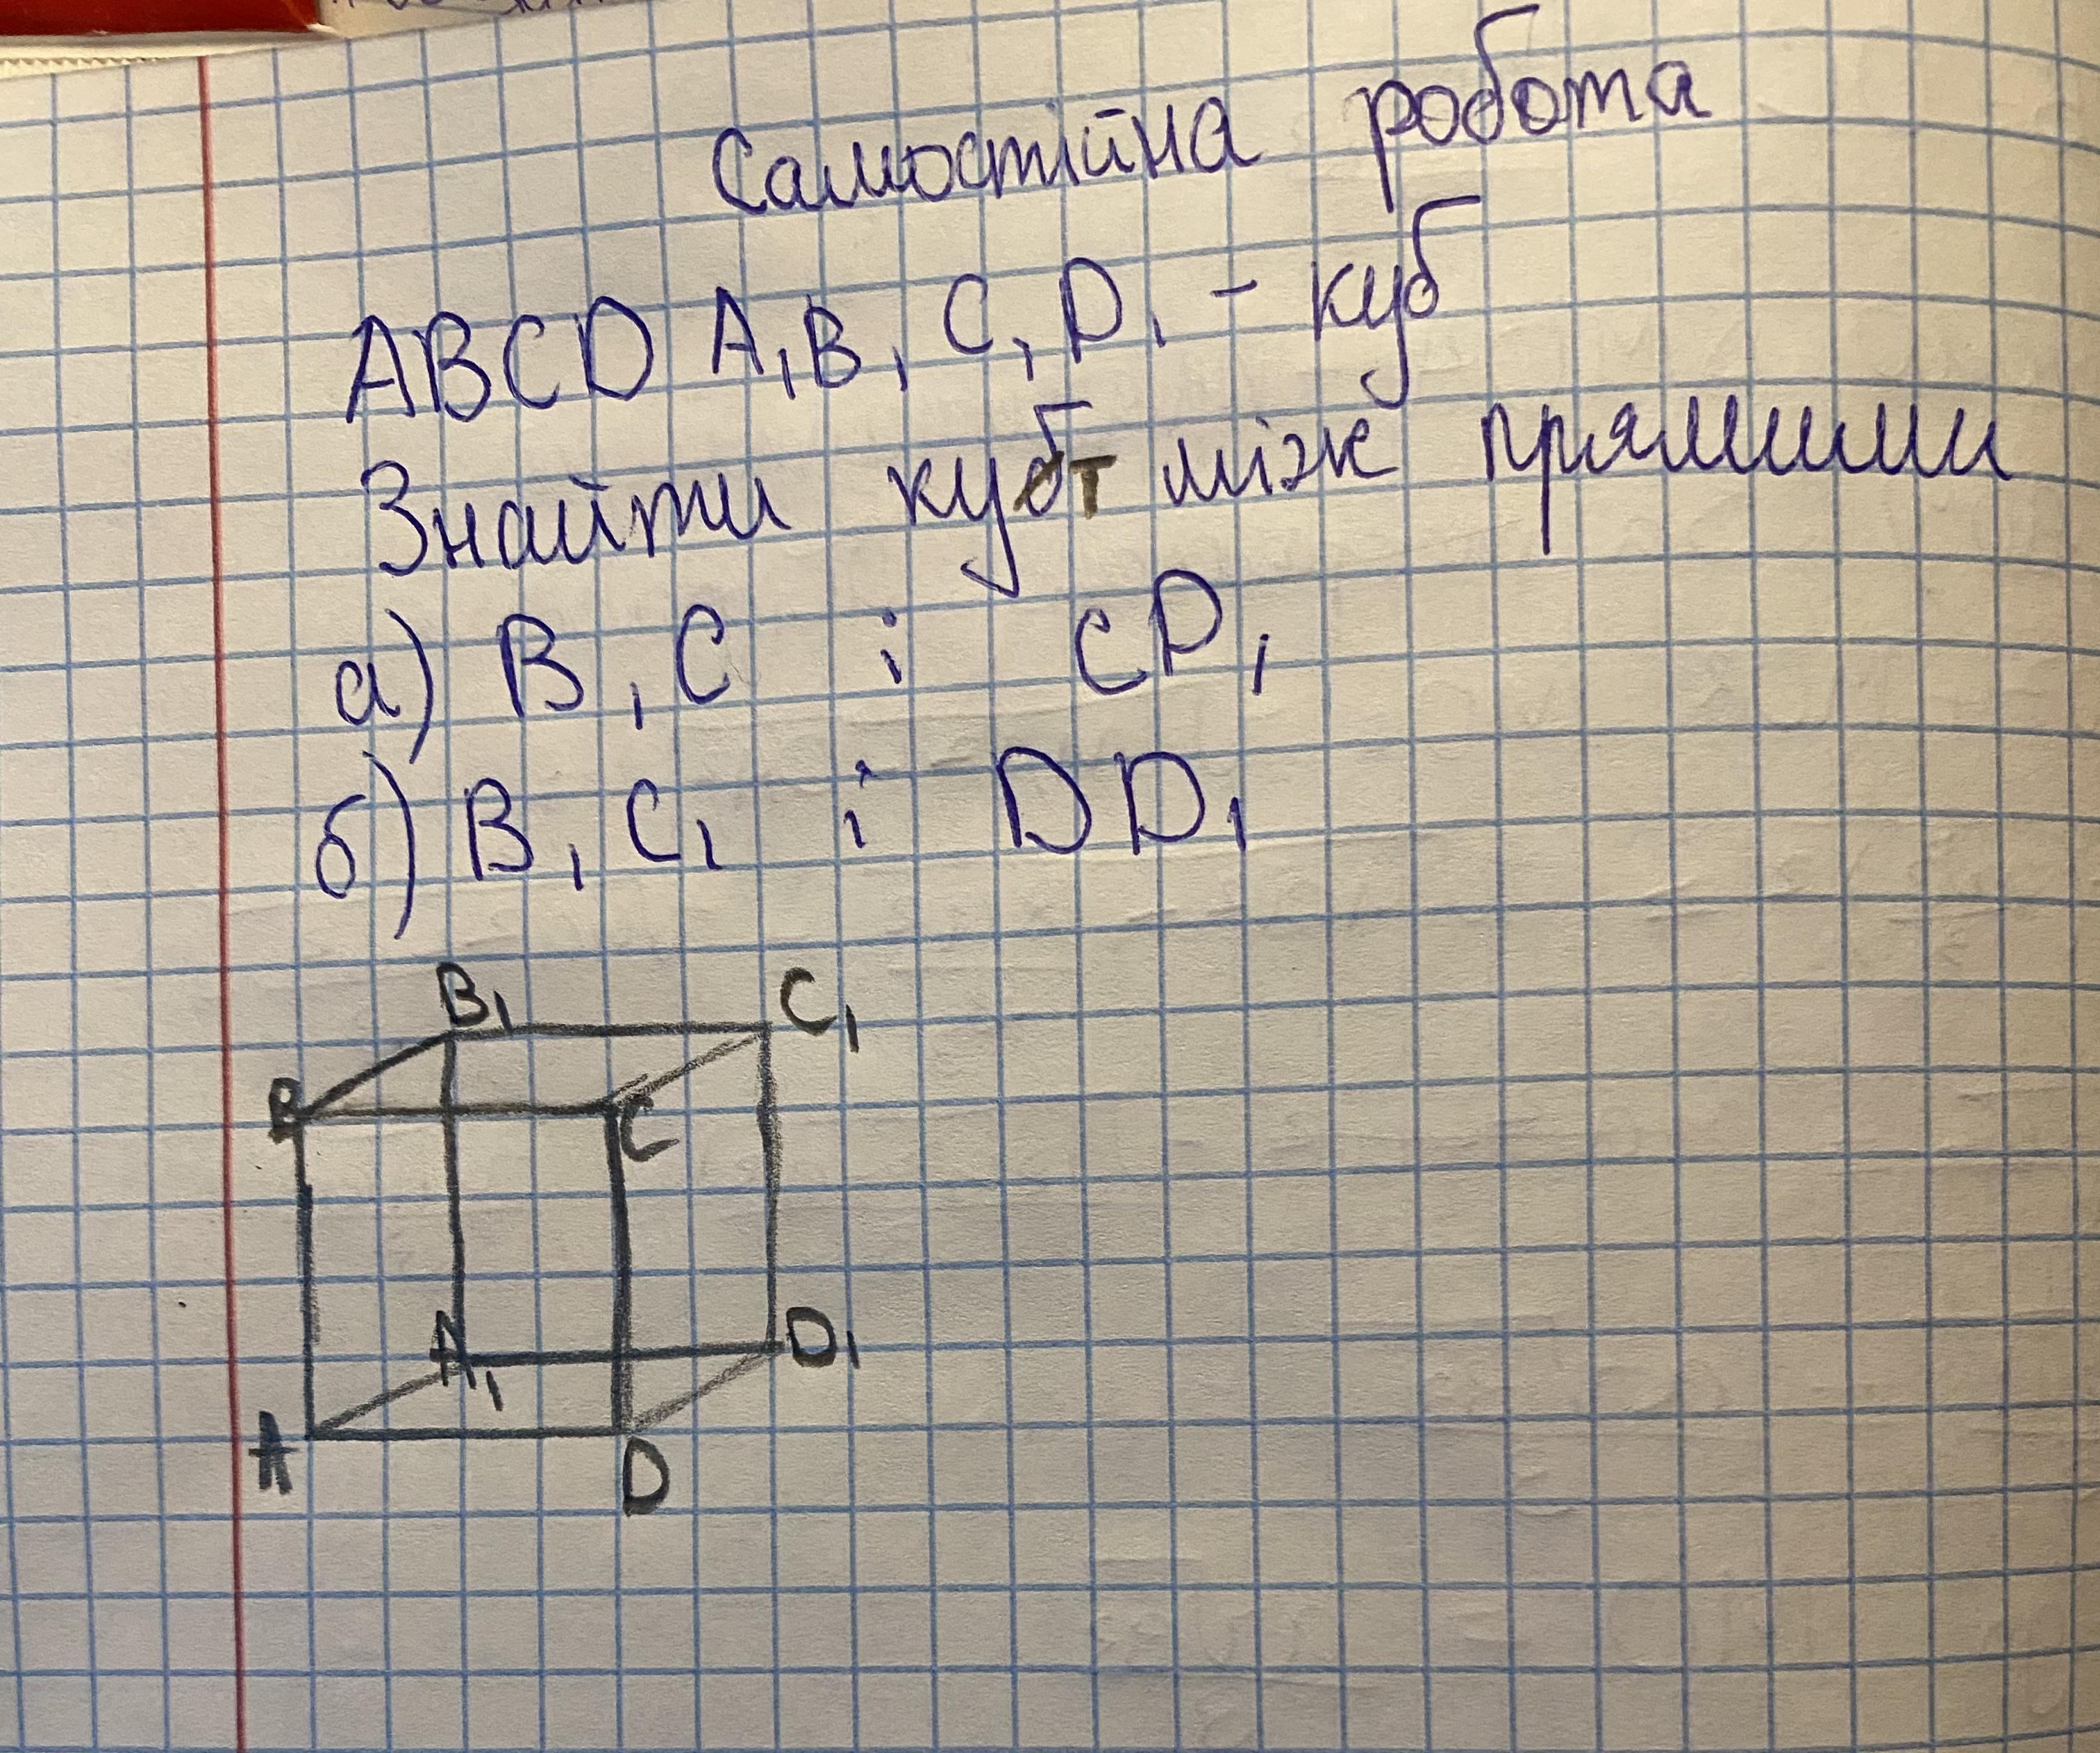 Самостійна робота
ABCD A₁B₁C₁D₁ - куб
Знайти кут між прямими
а) B₁C і CD₁
б) B₁C₁ і DD₁
B₁ C₁
B C
A₁ D₁
A D